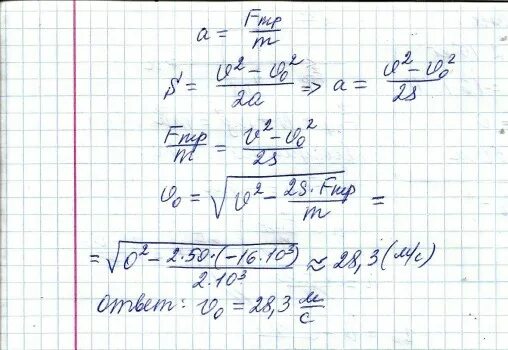 a = Fтр/m
S = (v² − v₀²)/2a => a = (v² − v₀²)/2s
Fтр/m = (v² − v₀²)/2s
v₀ = √(v² − 2S·Fтр/m) =
= √(0² − 2·50·(−16·10³)/2·10³) ≈ 28,3 (м/с)
Ответ: v₀ = 28,3 м/с